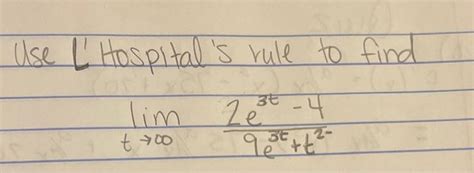 Use L'Hospital's rule to find
lim t→∞ (2e^{3t} - 4)/(9e^{3t} + t^2)